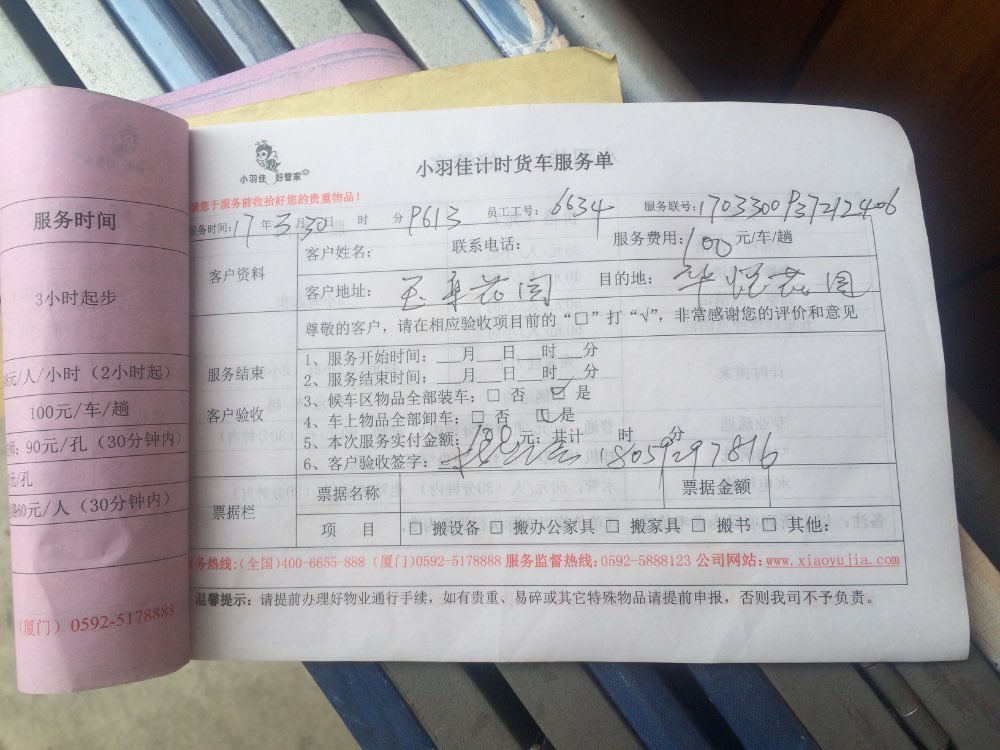 服务时间
3小时起步
元/人/小时（2小时起）
100元/车/趟
90元/孔（30分钟内）
元/孔
60元/人（30分钟内）
（厦门）0592-5178888
小羽佳 好管家
小羽佳计时货车服务单
请您于服务前收拾好您的贵重物品！
服务时间：17年3月30日 时 分 9613 员工工号：6634 服务联号：1703300937212406
客户资料
客户姓名： 联系电话： 服务费用：100元/车/趟
客户地址： 花园 目的地： 花园
尊敬的客户，请在相应验收项目前的“□”打“√”，非常感谢您的评价和意见
服务结束
客户验收
1、服务开始时间：__月__日__时__分
2、服务结束时间：__月__日__时__分
3、候车区物品全部装车：□ 否 ☑ 是
4、车上物品全部卸车：□ 否 ☑ 是
5、本次服务实付金额： 元；共计 时 分
6、客户验收签字： 8059297816
票据栏
票据名称 票据金额
项 目 □ 搬设备 □ 搬办公家具 □ 搬家具 □ 搬书 □ 其他：
务热线：（全国）400-6655-888（厦门）0592-5178888 服务监督热线：0592-5888123 公司网站：www.xiaoyujia.com
温馨提示：请提前办理好物业通行手续，如有贵重、易碎或其它特殊物品请提前申报，否则我司不予负责。